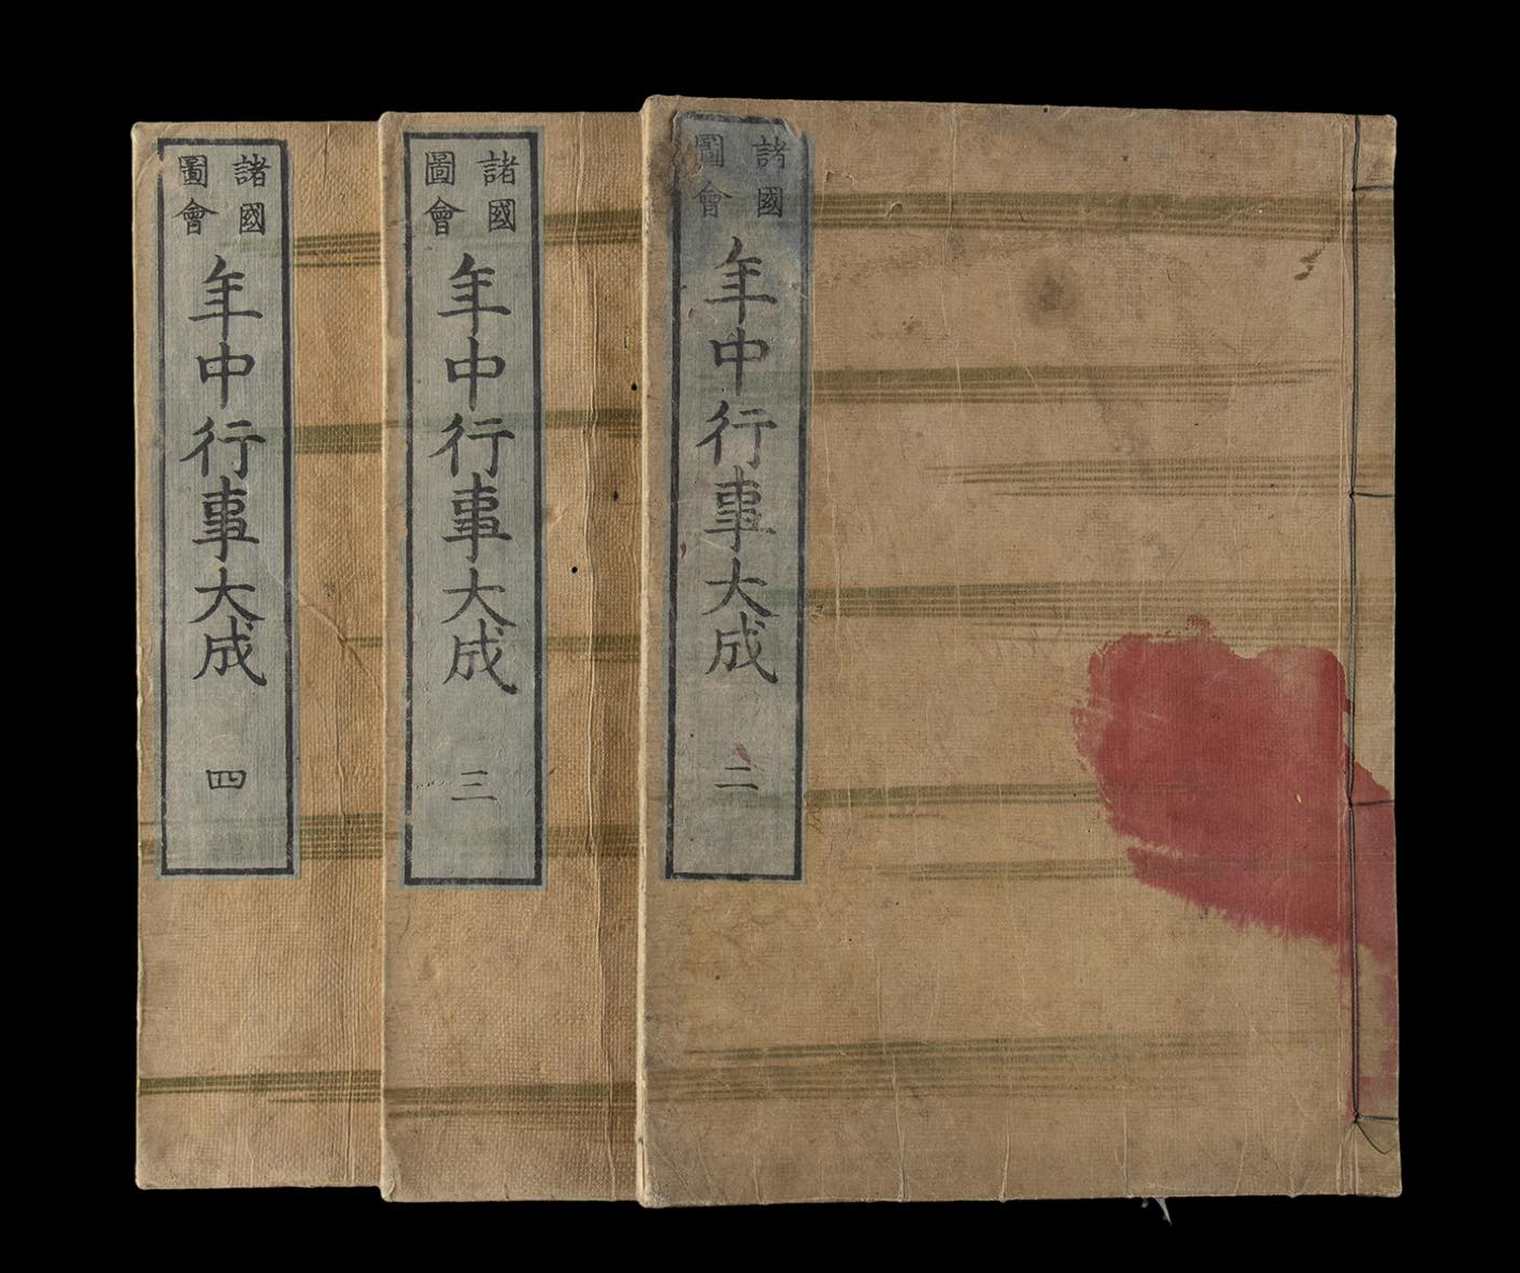 諸國
圖會
年中行事大成
二
諸國
圖會
年中行事大成
三
諸國
圖會
年中行事大成
四